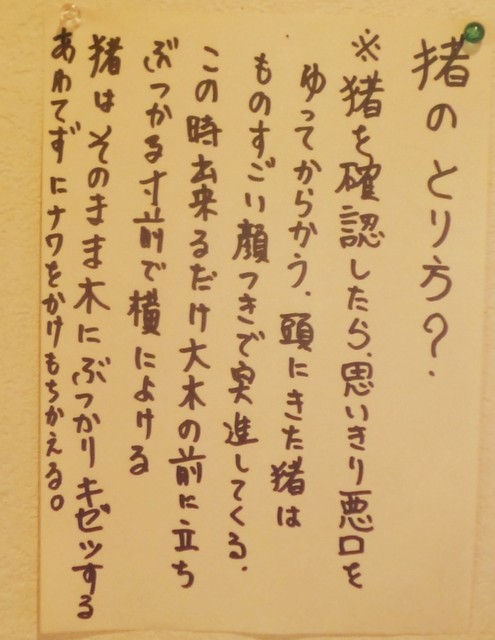 猪のとり方？.
※猪を確認したら、思いきり悪口を
ゆってからかう、頭にきた猪は
ものすごい顔つきで突進してくる.
この時出来るだけ大木の前に立ち
ぶつかる寸前で横によける
猪はそのまま木にぶつかりキゼツする
あわてずにナワをかけもちかえる。